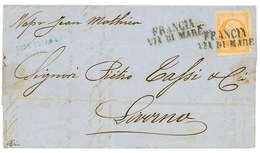 Vapr Jean Mathieu
FRANCIA
VIA DI MARE
FRANCIA
VIA DI MARE
Signori Pietro Tassi & Ci
Livorno